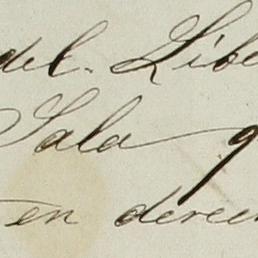 del. Libe
Sala q
en derec